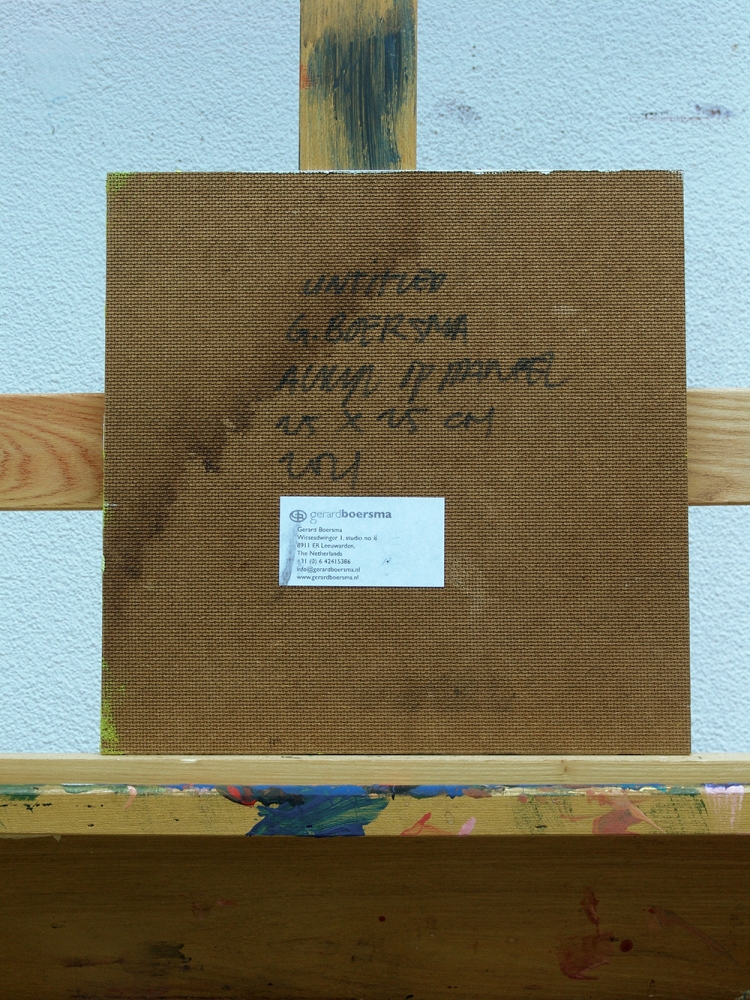 UNTITLED
G. BOERSMA
ACRYL OP PANEEL
25 X 25 CM
2021
gerardboersma
Gerard Boersma
Wissesdwinger 1, studio no 6
8911 ER Leeuwarden,
The Netherlands
+31 (0) 6 42415386
info@gerardboersma.nl
www.gerardboersma.nl